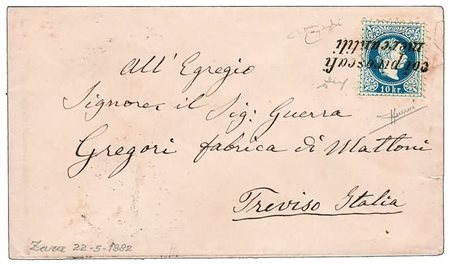 corp. postali
mercantili
10 kr.
All' Egregio
Signore il Sig: Guerra
Gregorj fabrica di Mattoni
Treviso Italia
Zara 22-5-1882